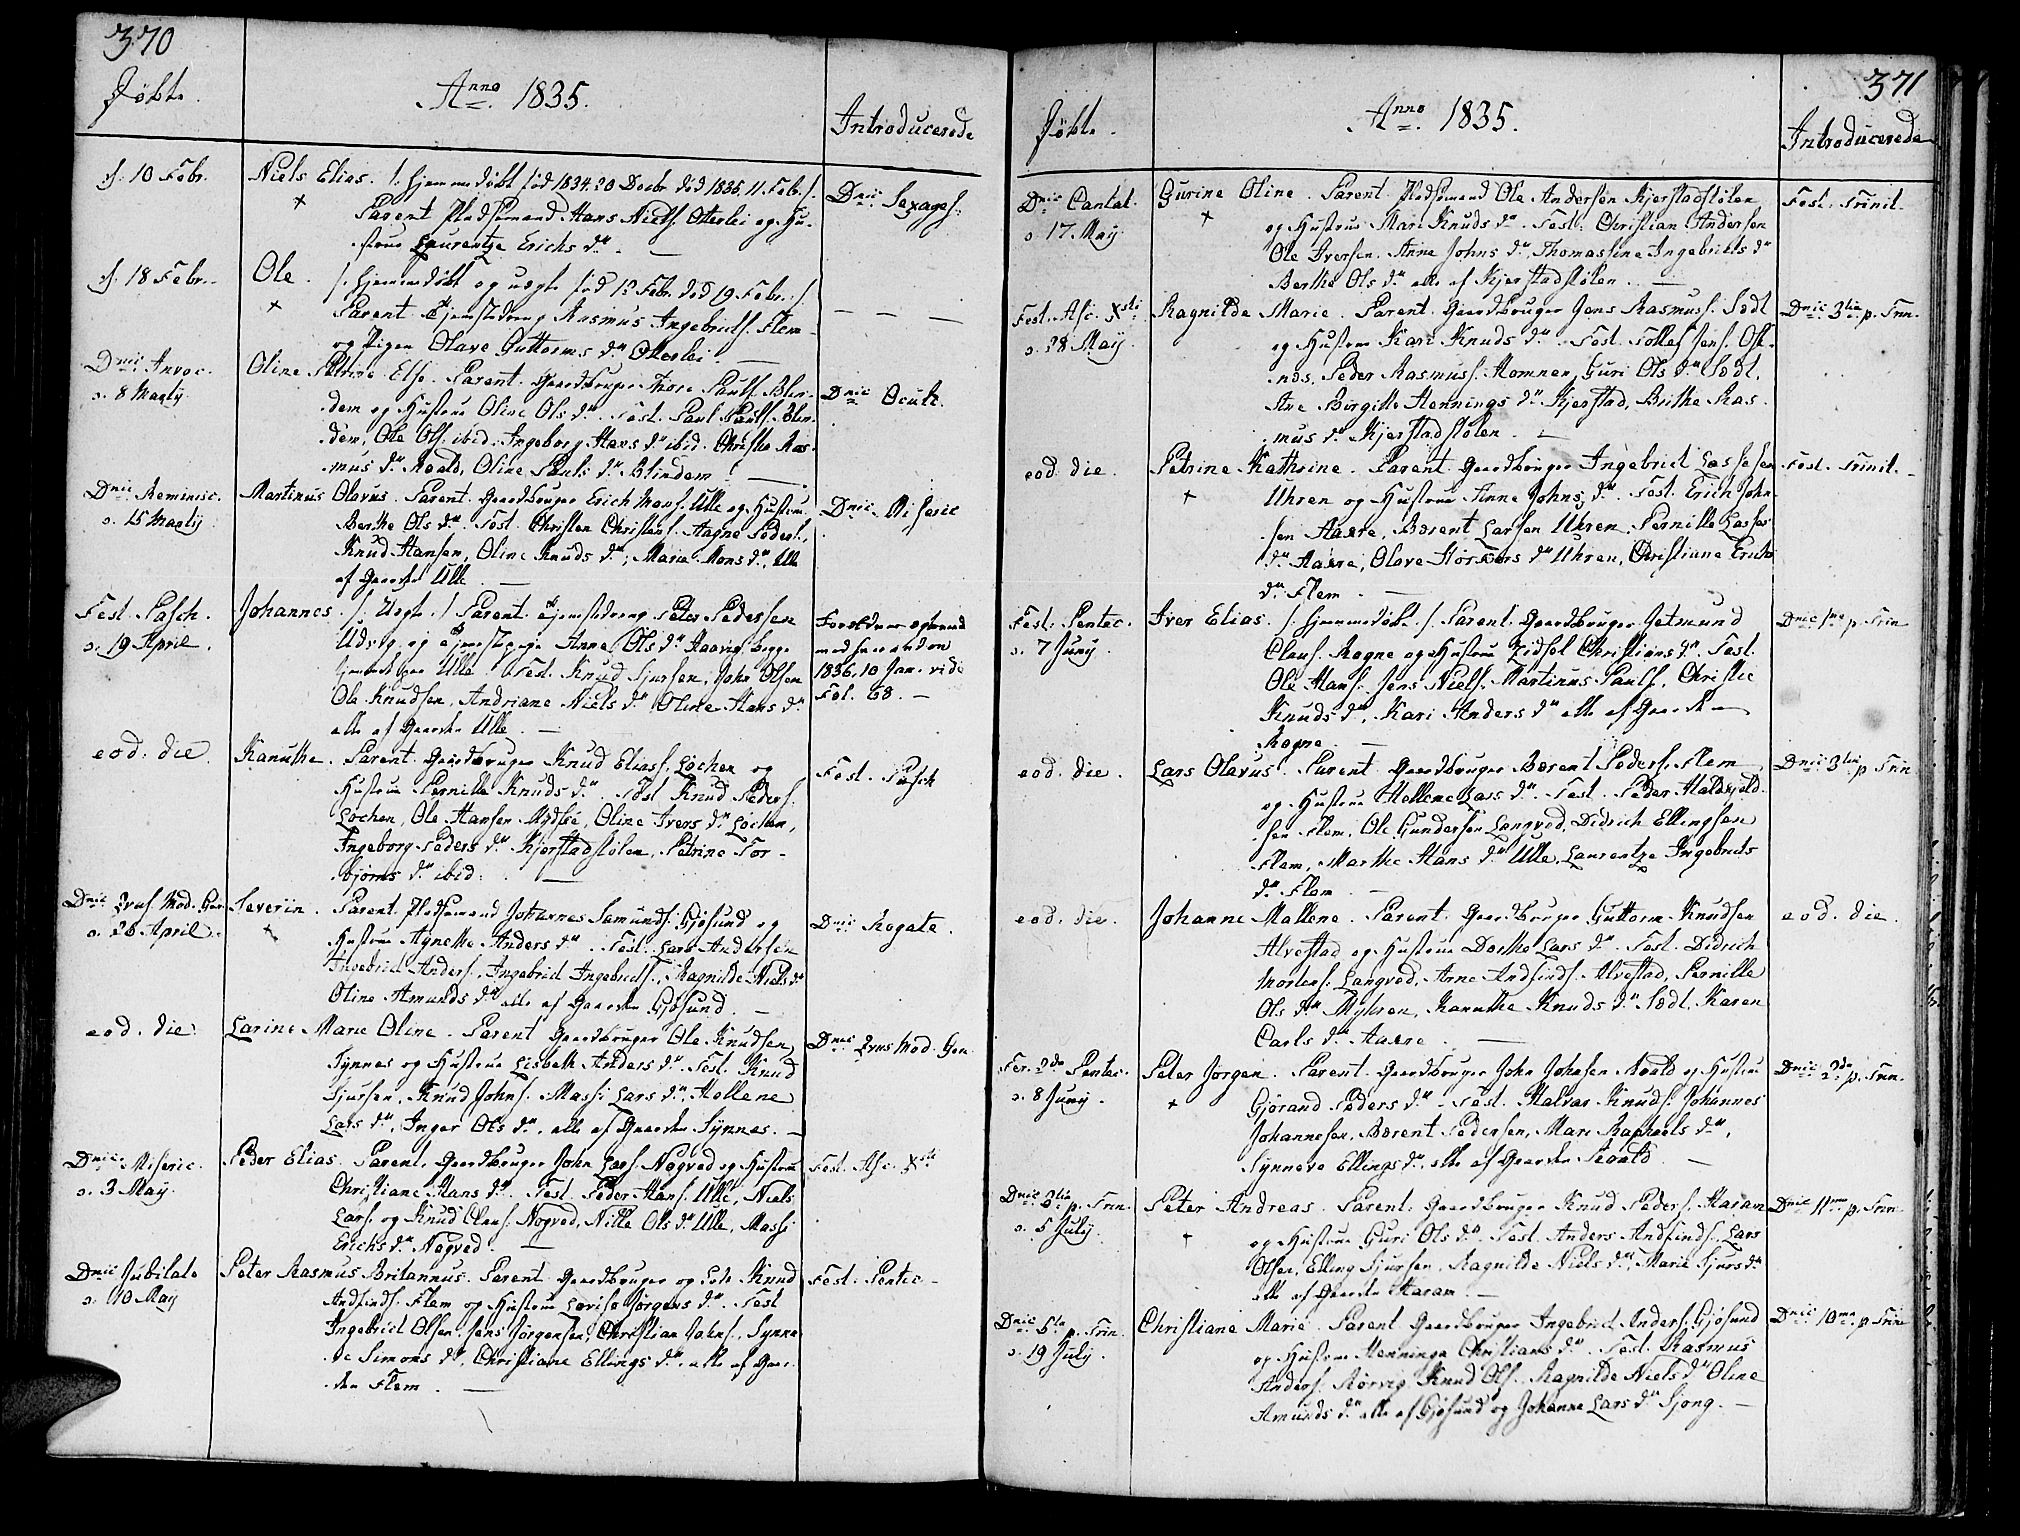 370
Døbte.
Anno 1835.
Introducerede
d. 10 Febr.
Niels Elias. /: hjemmedøbt fød 1834. 20 Decbr. død 1835. 11. Feb. :/
Parent Pladsemand Hans Niels. Otterlei og Hu-
strue Laurentze Erichs dr. —
Dnic Sexages:
d. 18 Febr.
Ole. /: hjemmedøbt og uægte fød 12 Febr. død 19 Febr. :/
Parent Tjenstedreng Rasmus Ingebrids. Flem
og Pigen Olave Guttorms dr Otterlei —
— — —
Dnic Invoc.
d. 8 Martij
Oline Petrine Else. Parent. Gaardbruger Thore Pauls. Blin-
dem og Hustrue Oline Ols dr. Test. Paul Pauls. Blin-
dem, Ole Ols. ibid. Ingeborg Hans dr ibid. Christie Ras-
mus dr Roald, Oline Pauls dr Blindem —
Dnic Oculi.
Dnic Reminisc.
d. 15 Martij
Martinus Olavus. Parent. Gaardbruger Erich Mons. Ulle og Hustrue
Berthe Ols dr. Test. Christen Christens. Aagne Peders.,
Knud Hansen, Oline Knuds dr, Marie Mons dr, alle
af Gaarden Ulle —
Dnic Miseric
Fest. Pasch.
d. 19 April.
Johannes. /: Uægte :/ Parent Tjenstedreng Peter Pedersen
og Tjenstepige Anne Ols dr Haavig begge
Ulle. Test. Knud Sjursen, John Olsen
Ole Knudsen, Andriane Niels dr Oline Hans dr
alle af Gaarden Ulle —
1836. 10 Jan. vide
Fol. 68. —
eod. die
Kanuthe. Parent. Gaardbruger Knud Elias. Løchen og
Hustrue Pernille Knuds dr. Test Knud Peders.
Løchen, Ole Hansen Mydsæ, Oline Ivers dr Løchen,
Ingeborg Peders dr Kjerstadstølen, Petrine Tor-
bjørns dr ibid. —
Fest. Pasch
d. 26 April.
Severin. Parent. Pladsemand Johannes Samunds. Gjøsund og
Hustrue Agnethe Anders dr. Test. Lars Andersen
Ingebrid Anders. Ingebrid Ingebrids., Ragnilde Niels dr
Oline Amunds dr alle af Gaarden Gjøsund. —
Dnic Rogate.
eod. die
Larine Marie Oline. Parent Gaardbruger Ole Knudsen
Synnes og Hustrue Lisbeth Anders dr. Test. Knud
Sjursen, Knud Johns. Massi Lars dr, Hellene
Lars dr, Inger Ols dr, alle af Gaarden Synnes. —
Dnic Miseric.
d. 3 May
Peder Elias. Parent. Gaardbruger John Lars. Nogved og Hustrue
Christiane Hans dr. Test. Peder Hans. Ulle, Niels
Lars. og Knud Claus. Nogved, Nille Ols dr Ulle, Massi
Erichs dr Nogved. —
Fest. Asc. Xsti
Dnic Jubilate
d. 10 May
Peter Rasmus Britannus. Parent. Gaardbruger og Knud
Andfinds. Flem og Hustrue Lovise Jørgens dr. Test
Ingebrid Olsen, Jens Jørgensen, Christian Johns., Synne
ve Simons dr, Christiane Ellings dr, alle af Gaar-
den Flem. —
Fest. Pentec.
371
Døbte.
Anno 1835.
Introducerede
Dnic Cantat.
d. 17. May
Gurine Oline. Parent. Pladsemand Ole Andersen Kjerstadstølen
og Hustrue Mari Knuds dr. Test. Christian Andersen
Ole Iversen, Anne Johns dr, Thomasine Ingebrids dr
Berthe Ols dr alle af Kjerstadstølen. —
Fest. Trinit.
Fest. Asc. Xsti
d. 28 May.
Ragnilde Marie. Parent. Gaardbruger Jens Rasmus. Sødt
og Hustrue Kari Knuds dr. Test. Tolles Jens. Ost-
næs. Peder Rasmus. Hamnen, Guri Ols dr Sødt,
Ane Birgitte Hennings dr Kjerstad, Brithe Ras-
mus dr Kjerstadstølen. —
Dnic 3tia p. Trin.
eod. die.
Petrine Kathrine. Parent. Gaardbruger Ingebrid Lassesen
Uhren og Hustrue Anne Johns dr. Test. Erich John-
sen Aakre, Børent Larsen Uhren, Pernille Lasses
dr Aakre, Olave dr Uhren, Christiane Erichs
dr Flem. —
Fest. Trinit.
Fest. Pentec.
d. 7 Junij.
Iver Elias. /: hjemmedøbt :/ Parent. Gaardbruger Getmund
Claus. Rogne og Hustrue Zidsel Christians dr. Test.
Ole Hans. Jens Niels. Martinus Pauls. Christie
Knuds dr, Kari Anders dr alle af Gaarden
Rogne. —
Dnic 1ma p. Trin
eod. die.
Lars Olavus. Parent. Gaardbruger Børent Peders. Flem
og Hustrue Hellene Lars dr. Test. Peder
sen Flem, Ole Gundersen Langved, Didrich Ellingsen
Flem, Marthe Hans dr Ulle, Laurentze Ingebrids
dr Flem. —
Dnic 3tia p. Trin
eod. die.
Johanne Mallene. Parent. Gaardbruger Guttorm Knudsen
Alvestad og Hustrue Dorthe Lars dr. Test. Didrich
Mortens. Langved, Arne Andfinds. Alvestad, Pernille
Ols dr Myhren, Kanuthe Knuds dr Sødt, Karen
Carls dr Aakre. —
eod. die.
Fer. 2da Pentec.
d. 8 Junij.
Peter Jørgen. Parent. Gaardbruger John Johnsen Roald og Hustrue
Gjørand Peders dr. Test. Halvar Knuds. Johannes
Johannesen, Børent Pedersen, Mari Raphaels dr,
Synneve Ellings dr, alle af Gaarden Roald —
Dnic 2da p. Trin.
Dnic 3tia p. Trin.
d. 5 July.
Peter Andreas. Parent. Gaardbruger Knud Peders. Haram
og Hustrue Guri Ols dr. Test. Anders Andfinds. Lars
Olsen, Elling Sjursen, Ragnilde Niels dr, Marie Sjurs dr
alle af Gaarden Haram. —
Dnic 11ma p. Trin.
Dnic 5ta p. Trin.
d. 19 July.
Christiane Marie. Parent Gaardbruger Ingebrid Anders. Gjøsund
og Hustrue Henninga Christians dr. Test. Rasmus
Anders. Rørvig, Knud Ols. Ragnilde Niels dr Oline
Amunds dr alle af Gjøsund og Johanne Lars dr Sjong. —
Dnic 10ma p. Trin